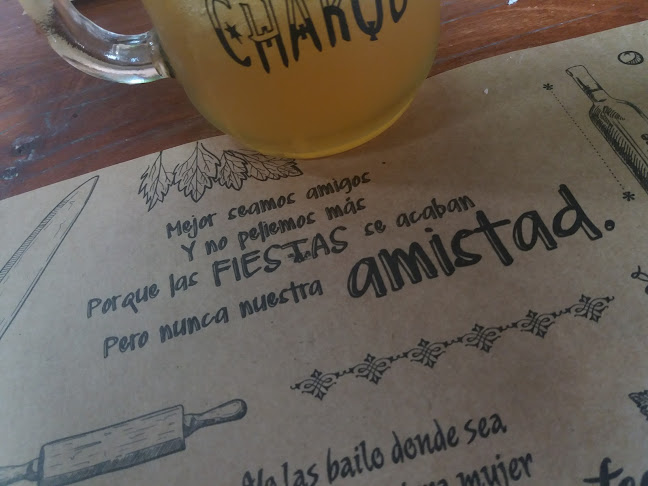 CHARQU
Mejor seamos amigos
Y no peliemos más
Porque las FIESTAS se acaban
Pero nunca nuestra amistad.
las bailo donde sea
mujer